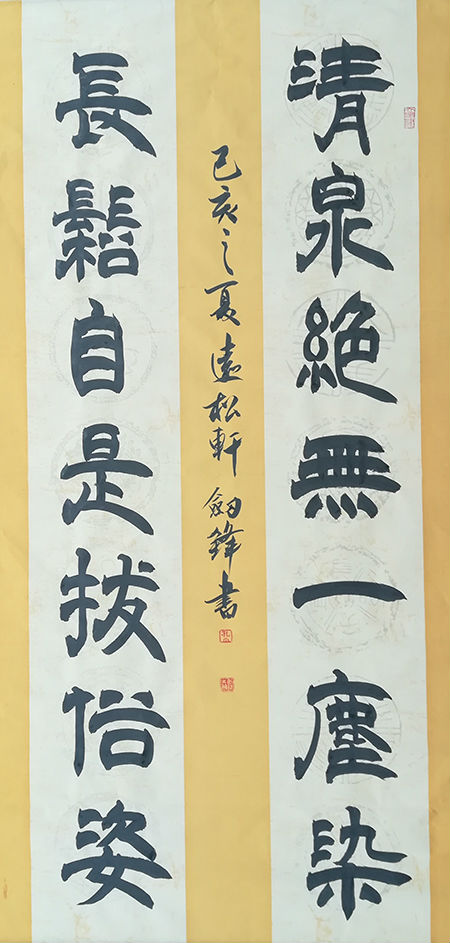 清泉絶無一塵染
長鬆自是拔俗姿
己亥之夏遠松軒劍鋒書